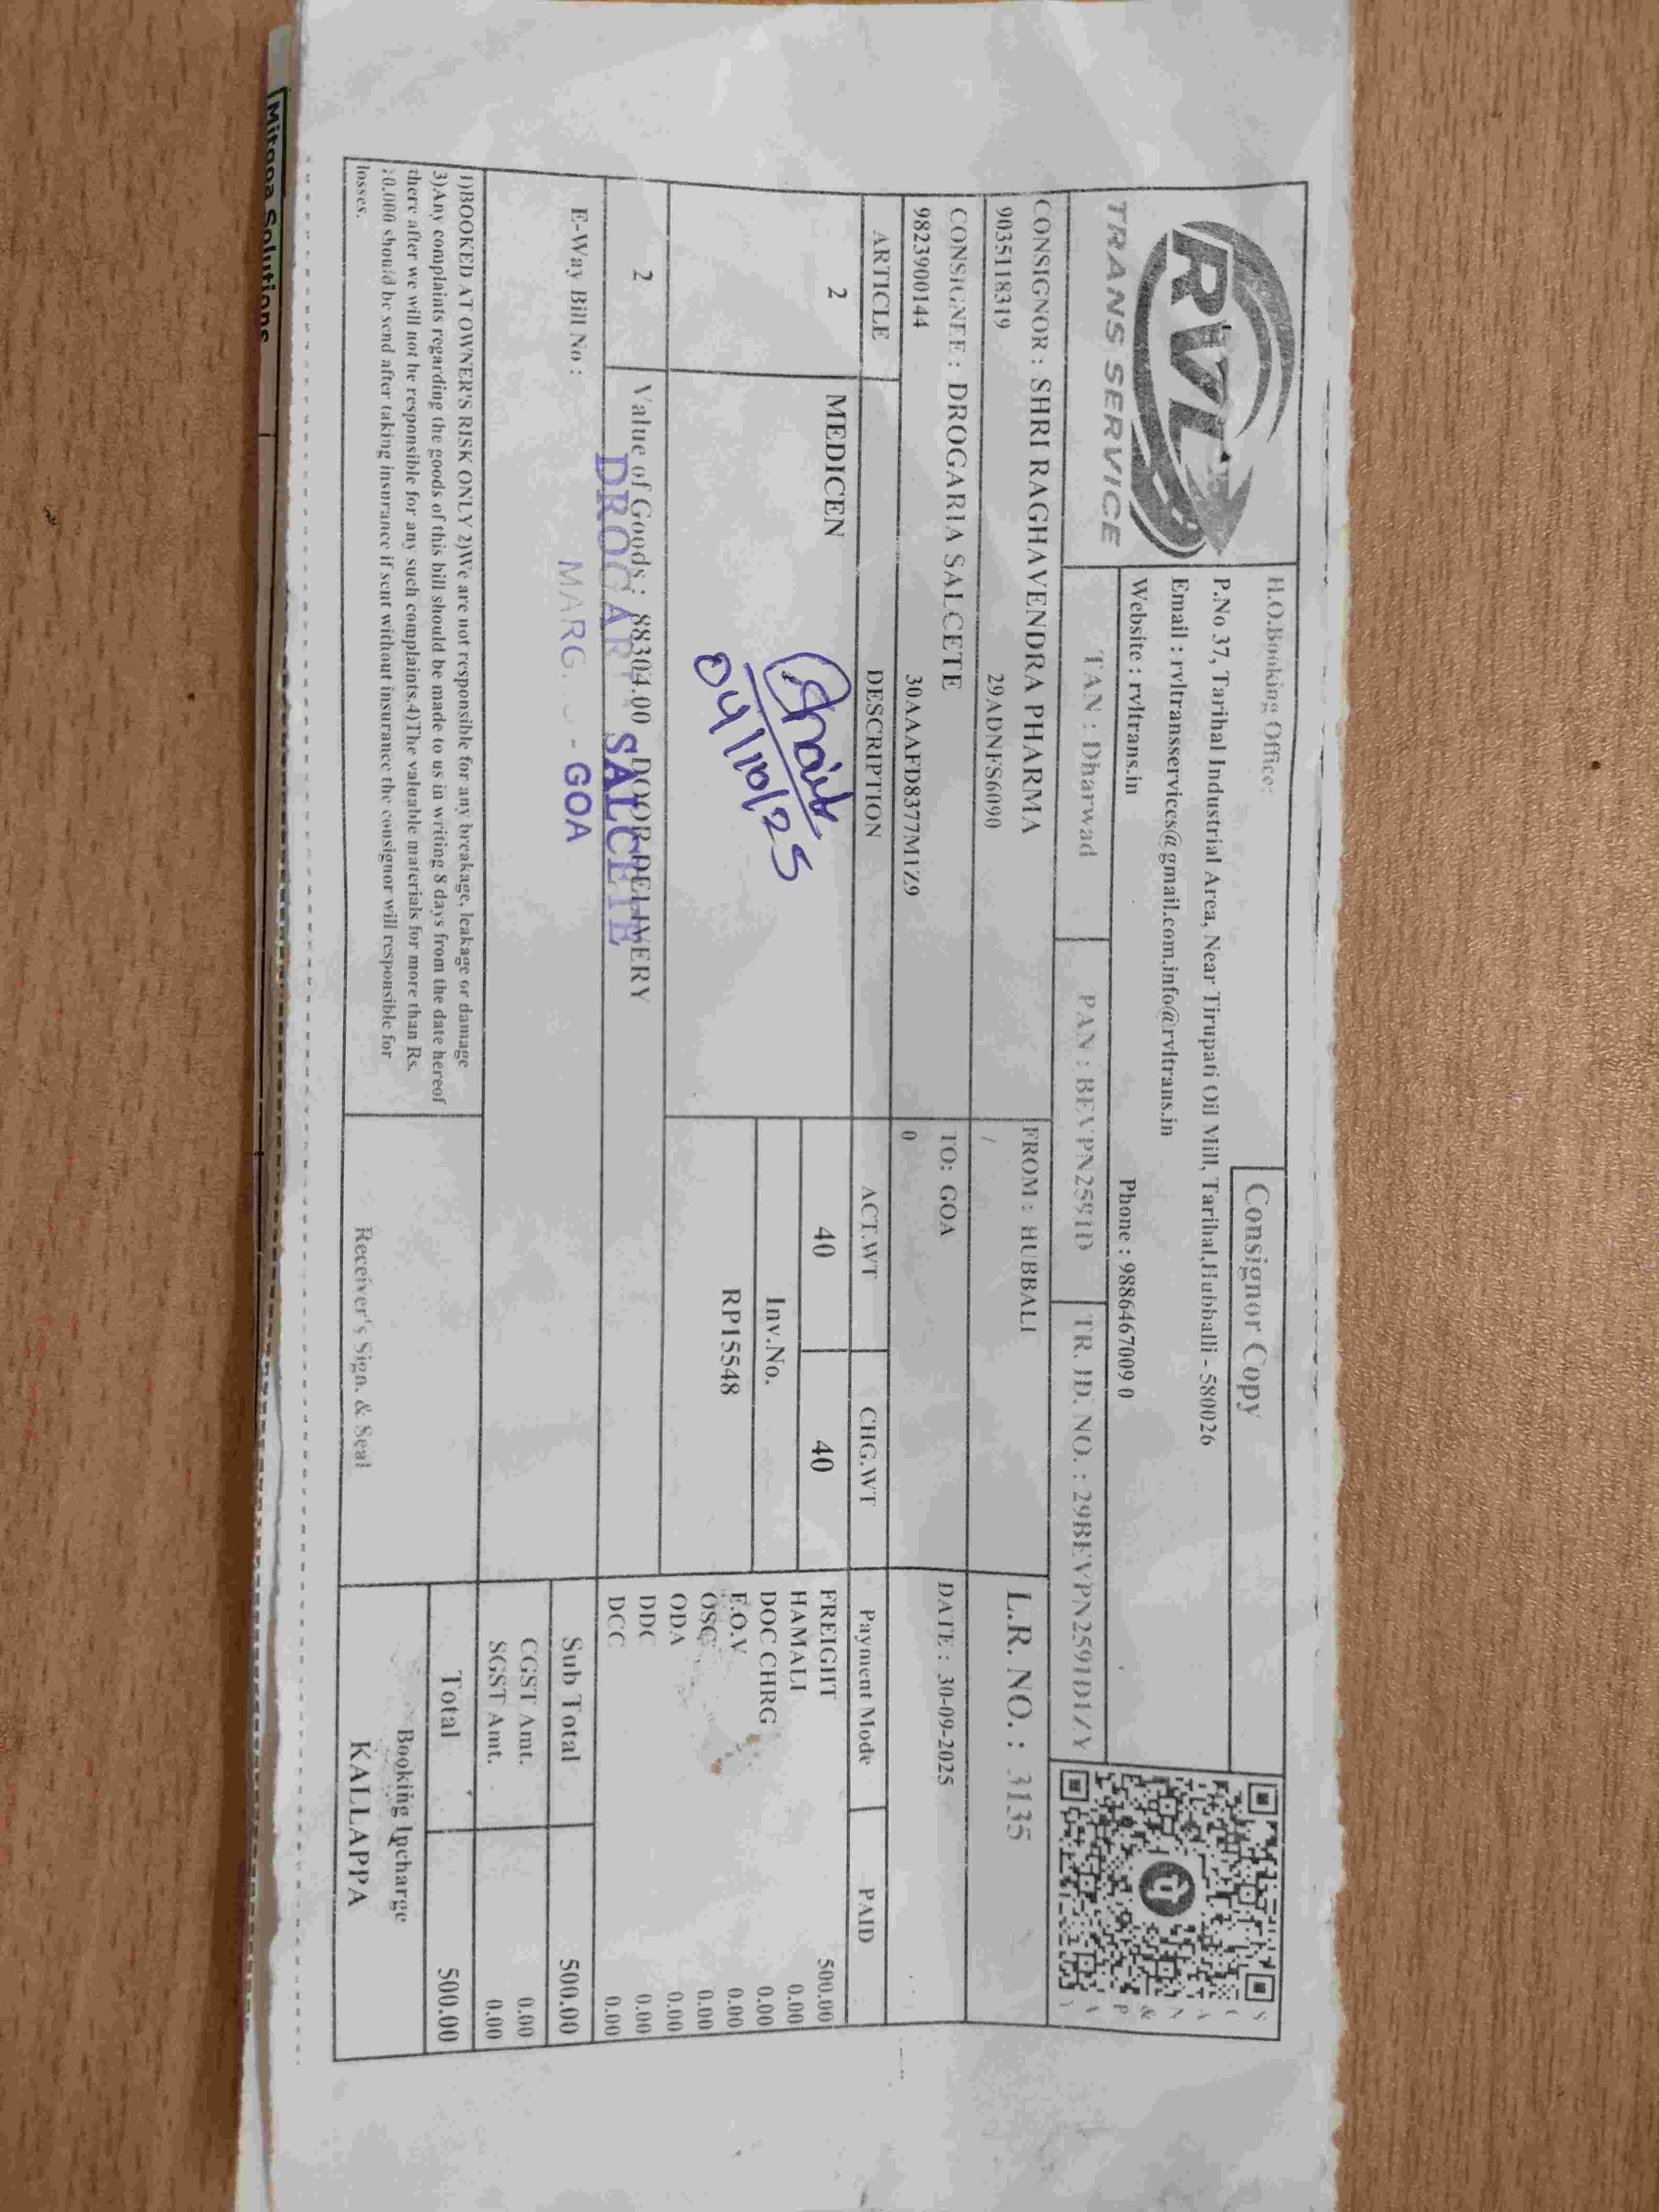 RVL
TRANS SERVICE
H.O.Booking Office:
Consignor Copy
P.No 37, Tarihal Industrial Area, Near Tirupati Oil Mill, Tarihal,Hubballi - 580026
Email : rvltransservices@gmail.com.info@rvltrans.in
Website : rvltrans.in
Phone : 9886467009 0
SCAN & PAY
TAN : Dharwad
PAN : BEVPN2591D
TR. ID. NO. : 29BEVPN2591D1ZY
CONSIGNOR : SHRI RAGHAVENDRA PHARMA
9035118319 29ADNFS6090
FROM : HUBBALI
/
L.R. NO. : 3135
CONSIGNEE : DROGARIA SALCETE
9823900144 30AAAFD8377M1Z9
TO: GOA
0
DATE : 30-09-2025
ARTICLE DESCRIPTION ACT.WT CHG.WT Payment Mode PAID
2 MEDICEN 40 40
Inv.No.
RP15548
04/10/25
FREIGHT 500.00
HAMALI 0.00
DOC CHRG 0.00
F.O.V 0.00
OSC 0.00
ODA 0.00
DDC 0.00
DCC 0.00
2 Value of Goods : 88304.00 DOOR DELIVERY
SALCETE
- GOA
E-Way Bill No :
Sub Total 500.00
CGST Amt. 0.00
SGST Amt. 0.00
Total 500.00
1)BOOKED AT OWNER'S RISK ONLY 2)We are not responsible for any breakage, leakage or damage
3)Any complaints regarding the goods of this bill should be made to us in writing 8 days from the date hereof
there after we will not be responsible for any such complaints.4)The valuable materials for more than Rs.
0.000 should be send after taking insurance if sent without insurance the consignor will responsible for
losses.
Receiver's Sign. & Seal
Booking Incharge
KALLAPPA
Solutions